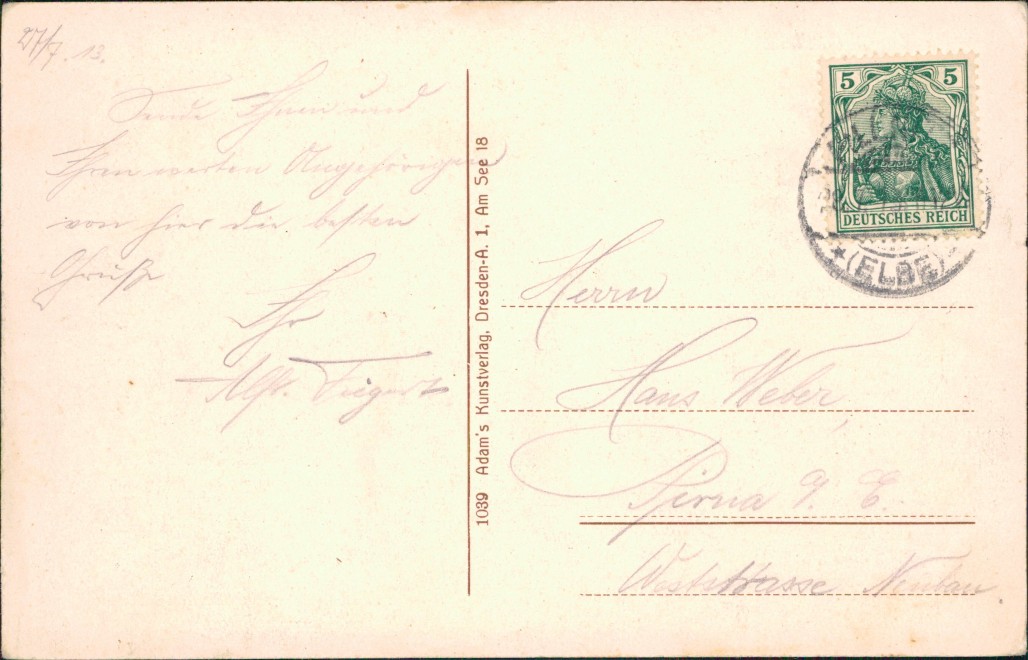 27/7. 13.
Sende Ihnen und
Ihren werten Angehörigen
von hier die besten
Grüße
Ihr
Alfr.
1039 Adam's Kunstverlag, Dresden-A. 1, Am See 18
5 5
DEUTSCHES REICH
(ELBE)
Herrn
Hans Weber,
Pirna a/ E.
Weststrasse Neubau